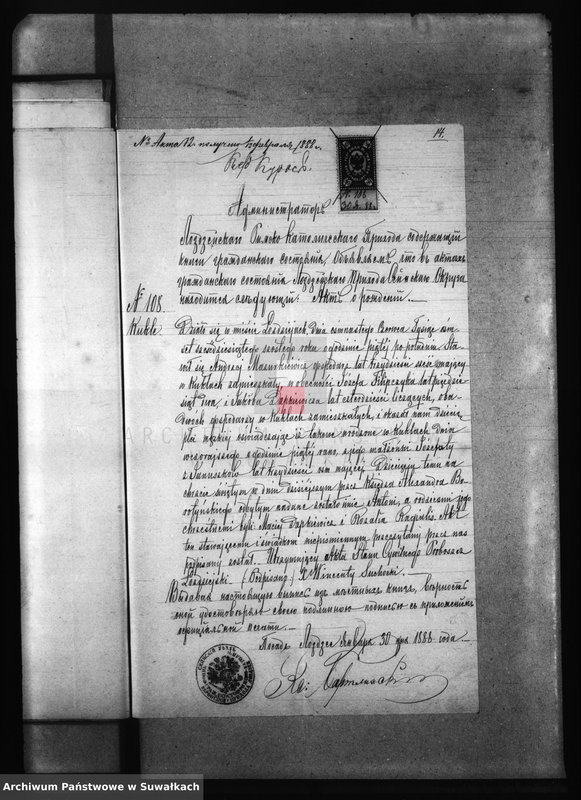 14.
№ Акта 12 получено февраля 1888 г.
№ 108
30
Администраторъ
Лоздзейскаго Римско Католическаго Прихода содержащій
книги гражданскаго состоянія, объявляетъ, что въ актахъ
гражданскаго состоянія Лоздзейскаго Прихода Сейнскаго Округа
находится слѣдующій: Актъ о рожденіи.
№ 108.
Kukle.
Działo się w mieście Łozdziejach, dnia osmnastego Czerwca Tysiąc ośm-
set sześćdziesiątego szóstego roku o godzinie piątej po południu. Sta-
wił się Andrzej Mazurkiewicz gospodarz lat trzydzieści sześć mający
w Kuklach zamieszkały, w obecności Józefa Filipczyka lat pięćdzie-
siąt dwa, i Jakóba Dapkiewicza lat czterdzieści liczących, oba-
dwóch gospodarzy w Kuklach zamieszkałych, i okazał nam dziecię
płci męzkiej oświadczając iż takowe urodzone w Kuklach dnia
wczorajszego o godzinie piątej rano, z jego małżonki Józefaty
z lat trzydzieści ośm mającej. Dziecięciu temu na
chrzcie świętym w dniu dzisiejszym przez Księdza Alexandra
odbytym nadane zostało imie Antoni, a rodzicami jego
chrzestnemi byli Maciej Dapkiewicz i Rozalia Akt
ten stawającemu i świadkom niepiśmiennym przeczytany przez nas
podpisany został. Utrzymujący Akta Stanu Cywilnego Proboszcz
Łozdziejski (Podpisano) X Wincenty Suchocki.
Выдавая настоящую выпись изъ мѣстныхъ книгъ, вѣрность
оной удостовѣряю своею подлинною подписью съ приложеніемъ
оффиціальной печати.
Посадъ Лоздзее Января 30 дня 1888 года.
Archiwum Państwowe w Suwałkach